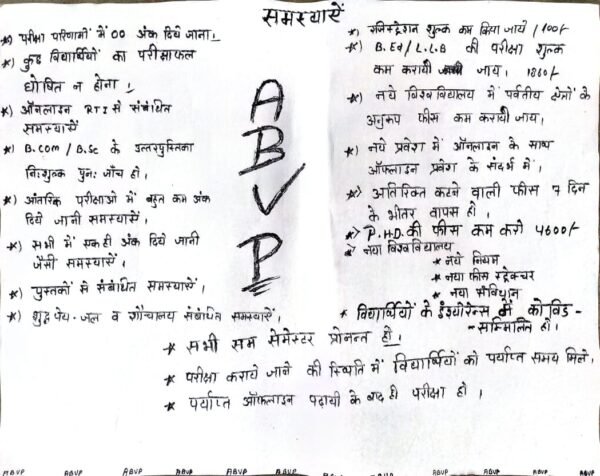 समस्याऐं
*) परीक्षा परिणामों में 00 अंक दिये जाना।
*) कुछ विद्यार्थियों का परीक्षाफल
घोषित न होना।
*) ऑनलाइन RTI से संबंधित
समस्याऐं
*) B.com / B.Sc के उत्तरपुस्तिका
निःशुल्क पुनः जाँच हो।
*) आंतरिक परीक्षाओं में बहुत कम अंक
दिये जानी समस्याऐं।
*) सभी में एक ही अंक दिये जानी
जैसी समस्याऐं।
*) पुस्तकों से संबंधित समस्याऐं।
*) शुद्ध पेय-जल व शौचालय संबंधित समस्याऐं।
A
B
V
P
*) रजिस्ट्रेशन शुल्क कम किया जाये / 100/-
*) B.Ed / L.L.B की परीक्षा शुल्क
कम करायी जाय। 1860/-
*) नये विश्वविद्यालय में पर्वतीय क्षेत्रों के
अनुरूप फीस कम करायी जाय।
*) नये प्रवेश में ऑनलाइन के साथ
ऑफलाइन प्रवेश के संदर्भ में।
*) अतिरिक्त कटने वाली फीस 7 दिन
के भीतर वापस हो।
*) P.H.D. की फीस कम करो 4600/-
*) नया विश्वविद्यालय
* नये नियम
* नया फीस स्ट्रेक्चर
* नया संविधान
* विद्यार्थियों के इंश्योरेन्स में कोविड -
- सम्मिलित हो।
* सभी सम सेमेस्टर प्रोन्नत हो।
* परीक्षा कराये जाने की स्थिति में विद्यार्थियों को पर्याप्त समय मिले,
* पर्याप्त ऑफलाइन पढ़ायी के बाद ही परीक्षा हो।
ABVP ABVP ABVP ABVP ABVP ABVP ABVP ABVP ABVP